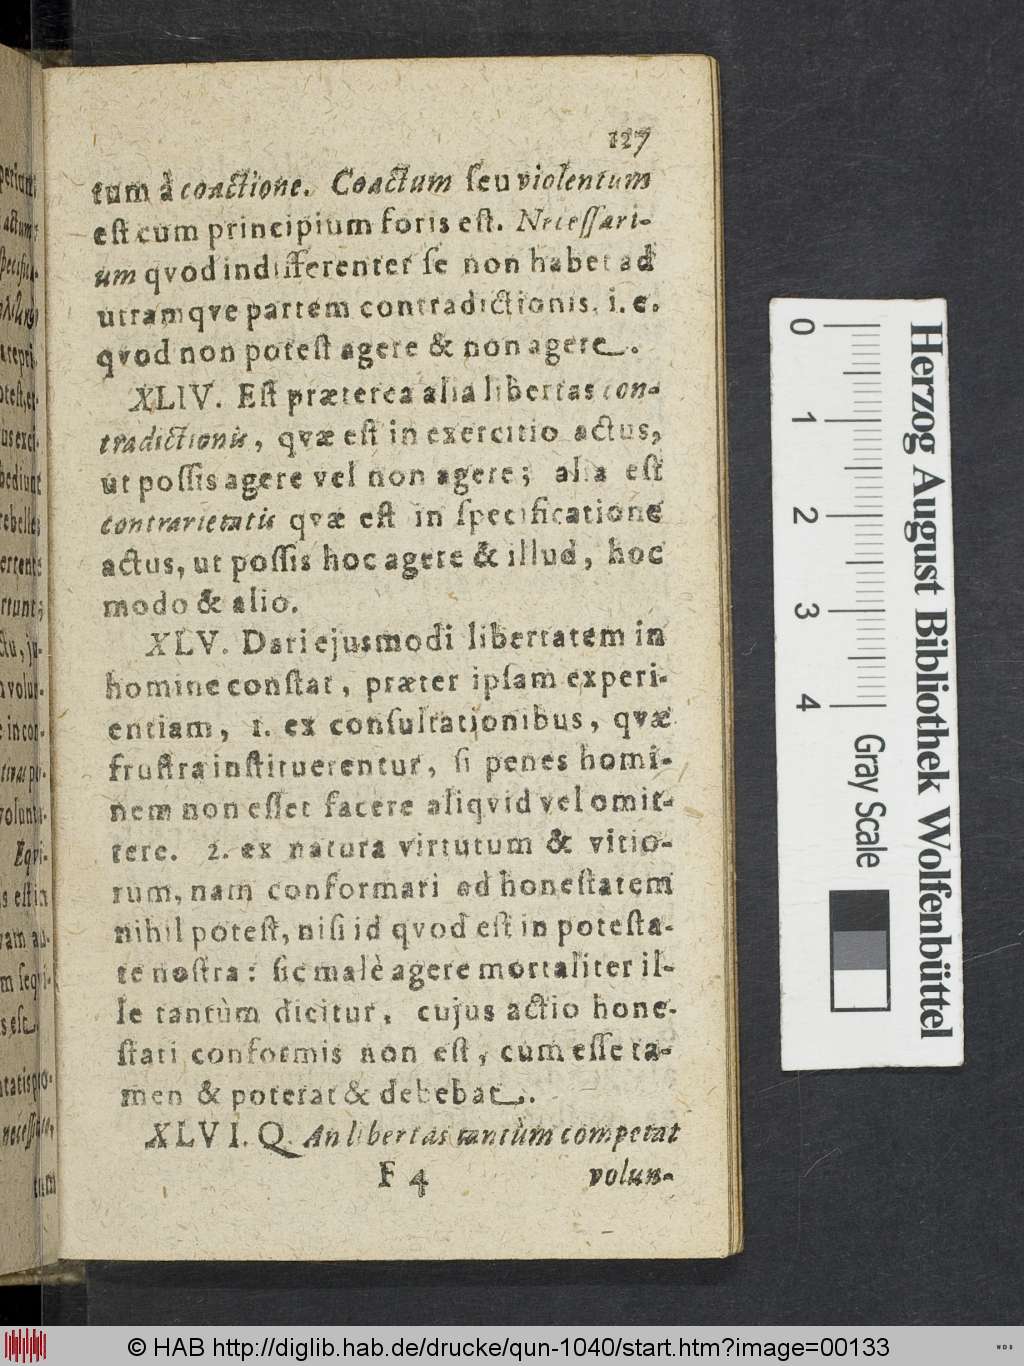 127
tum à coactione. Coactum ſeu violentum
eſt cum principium foris eſt. Neceſſari-
um qvod indifferenter ſe non habet ad
utramqve partem contradictionis, i. e.
qvod non poteſt agere & non agere.
XLIV. Eſt præterea alia libertas con-
tradictionis, qvæ eſt in exercitio actus,
ut poſſis agere vel non agere; alia eſt
contrarietatis qvæ eſt in ſpecificatione
actus, ut poſſis hoc agere & illud, hoc
modo & alio.
XLV. Dari ejusmodi libertatem in
homine conſtat, præter ipſam experi-
entiam, 1. ex conſultationibus, qvæ
fruſtra inſtituerentur, ſi penes homi-
nem non eſſet facere aliqvid vel omit-
tere. 2. ex natura virtutum & vitio-
rum, nam conformari ad honeſtatem
nihil poteſt, niſi id qvod eſt in poteſta-
te noſtra: ſic malè agere mortaliter il-
le tantùm dicitur, cujus actio hone-
ſtati conformis non eſt, cum eſſe ta-
men & poterat & debebat.
XLVI. Q. An libertas tantùm competat
F 4
volun-
Herzog August Bibliothek Wolfenbüttel
0 1 2 3 4
Gray Scale
© HAB http://diglib.hab.de/drucke/qun-1040/start.htm?image=00133